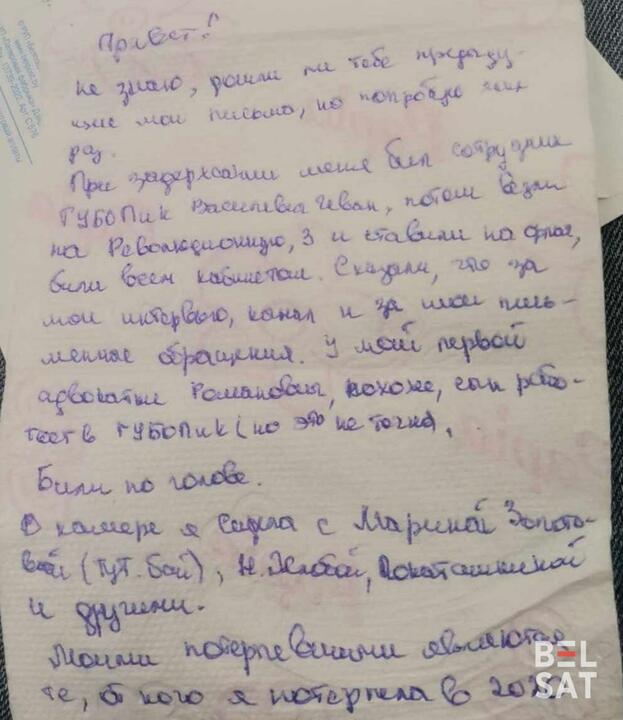 Привет!
Не знаю, дошли ли тебе предыду-
щие мои письма, но попробую
раз.
При задержании меня бил сотрудник
ГУБОПиК Василевич Иван, потом везли
на Революционную, 3 и ставили на флаг,
били всем кабинетом. Сказали, что за
мои интервью, канал и за мои пись-
менные обращения. У моей первой
адвокатки Романович, похоже, сын рабо-
тает в ГУБОПиК (но это не точно).
Били по голове.
В камере я сидела с Мариной Золото-
вой (тут.бай), Н. Хлобой,
и другими.
Моими потерпевшими являются
те, от кого я потерпела в
BEL
SAT